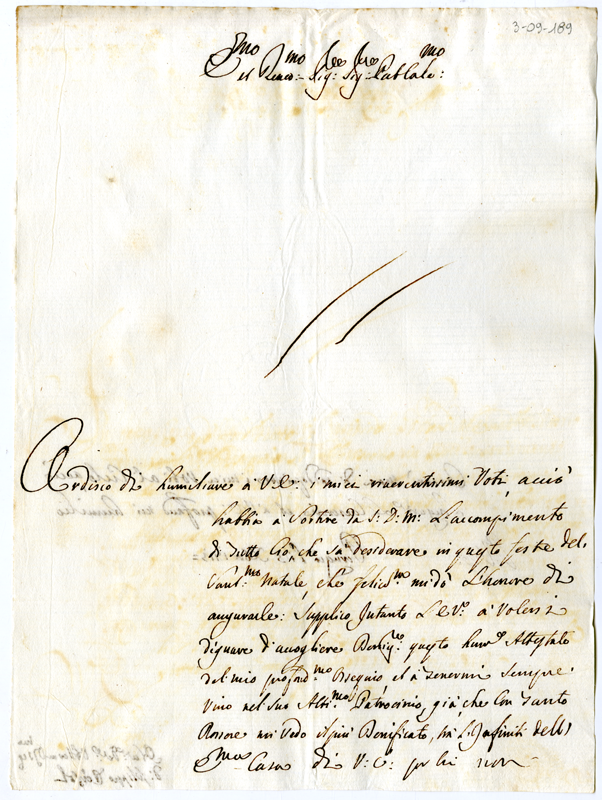 3-09-189
Emo
et Rmo Sig.r Sig.r
Ardisco di humiliare à V.E. i miei riverentissimi Voti, acciò
habbia à Sortire da S. D. M. L'accompimento
di tutto Ciò che sà desiderare in queste feste del
Sant.mo Natale, che felicis.me mi dò L'honore di
augurarle: Supplico Intanto L'E.V. à Volersi
dignare d'accogliere questo Attestato
del mio profond.mo Ossequio, et à tenermi Sempre
vivo nel Suo Alti.mo Patrocinio, già che Con Tanto
Rossore mi Vedo il più Beneficato, trà L'Infiniti dell'
E.ma Casa di V.E. per lei non